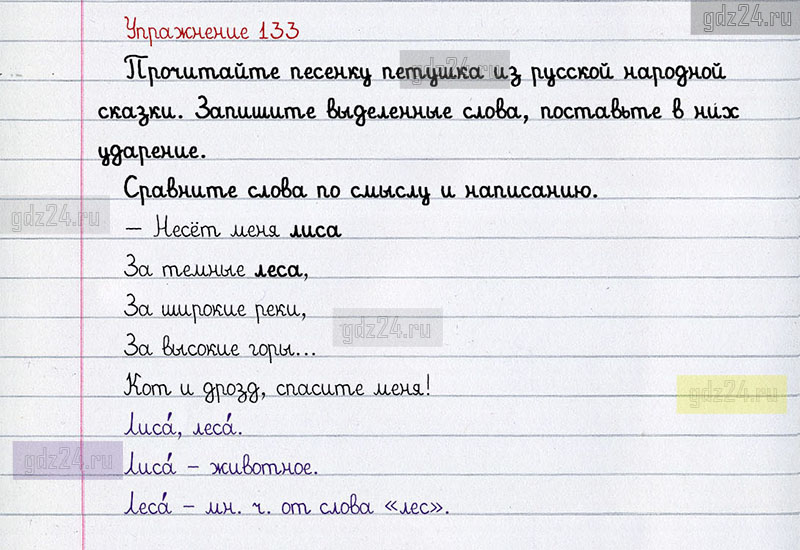 gdz24.ru
Упражнение 133
Прочитайте песенку петушка из русской народной
gdz24.ru
сказки. Запишите выделенные слова, поставьте в них
ударение.
Сравните слова по смыслу и написанию.
gdz24.ru
– Несёт меня лиса
За темные леса,
За широкие реки,
gdz24.ru
За высокие горы...
Кот и дрозд, спасите меня!
gdz24.ru
Лиса́, леса́.
gdz24.ru
Лиса́ – животное.
Леса́ – мн. ч. от слова «лес».